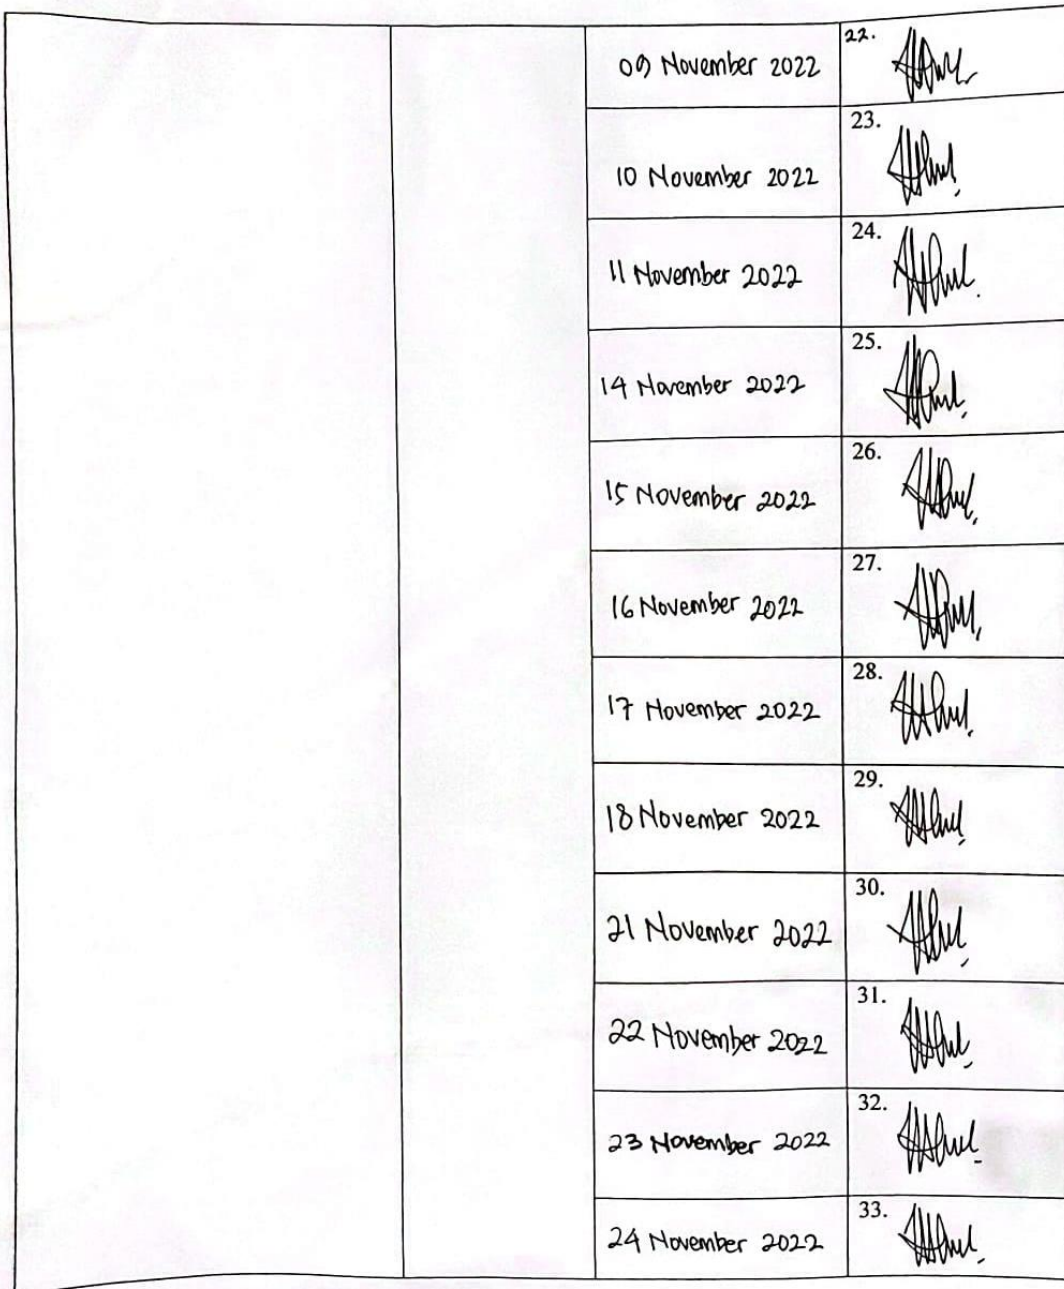 22.
09 November 2022
23.
10 November 2022
24.
11 November 2022
25.
14 November 2022
26.
15 November 2022
27.
16 November 2022
28.
17 November 2022
29.
18 November 2022
30.
21 November 2022
31.
22 November 2022
32.
23 November 2022
33.
24 November 2022